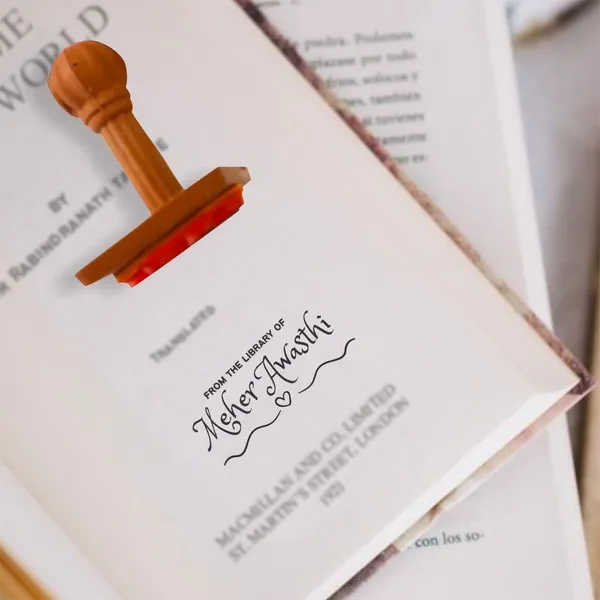 WORLD
BY
RABINDRANATH
TRANSLATED
FROM THE LIBRARY OF
Meher Awasthi
MACMILLAN AND CO. LIMITED
ST. MARTIN'S STREET, LONDON
1921
piedra. Podemos
por todo
sofocos y
también
si tuvieses
con los so-